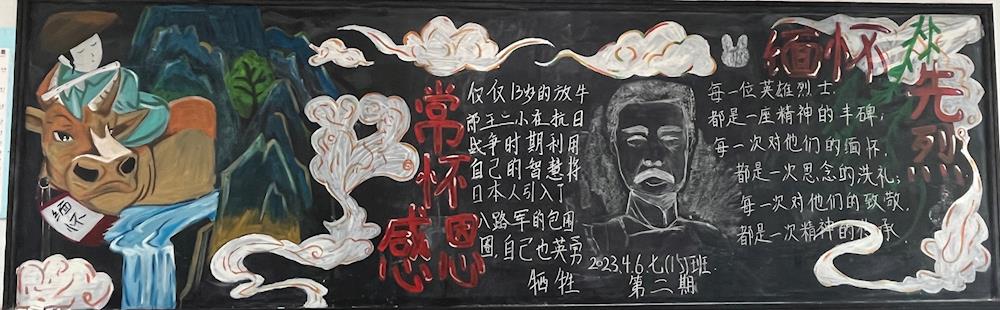 缅怀
常怀感恩
仅仅13岁的放牛
郎王二小在抗日
战争时期利用
自己的智慧将
日本人引入了
八路军的包围
圈,自己也英勇
牺牲
2023.4.6.七(15)班.
第二期
缅怀
先烈
每一位英雄烈士.
都是一座精神的丰碑;
每一次对他们的缅怀.
都是一次思念的洗礼;
每一次对他们的致敬.
都是一次精神的传承